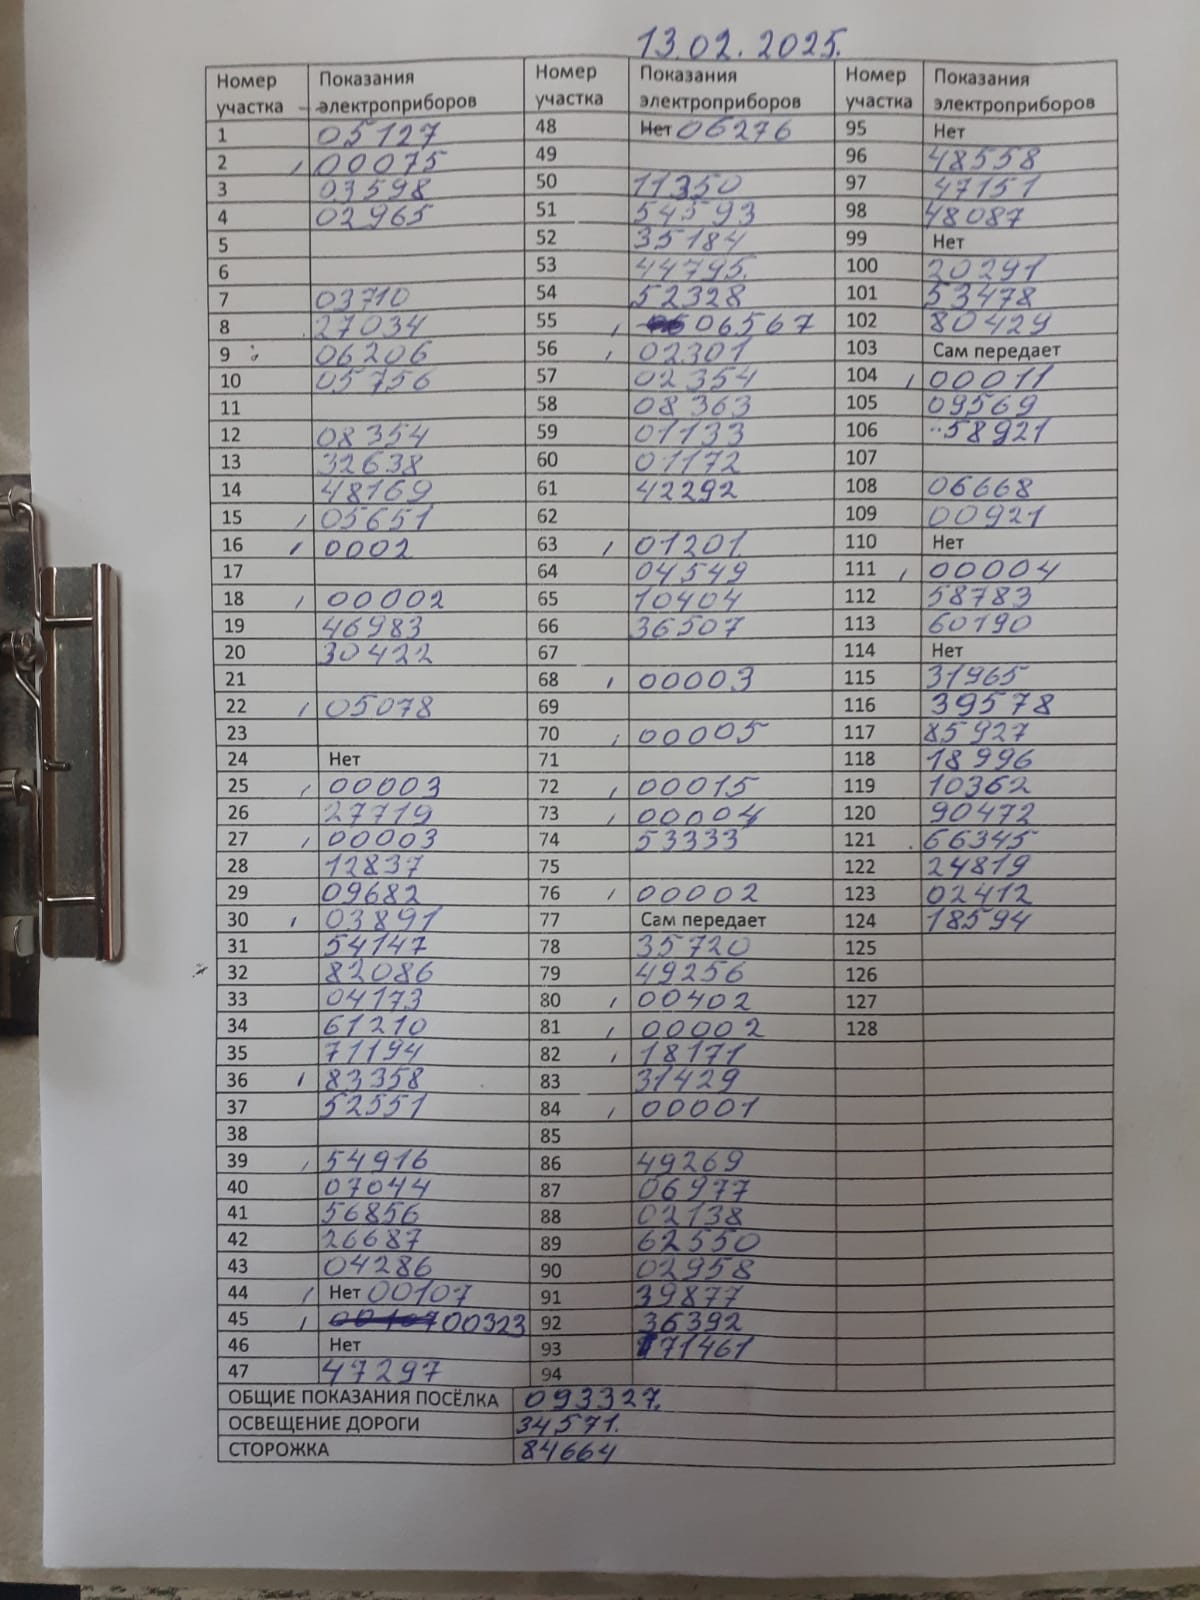 13.02.2025.
Номер участка Показания электроприборов Номер участка Показания электроприборов Номер участка Показания электроприборов
1 05127 48 Нет 06276 95 Нет
2 00075 49 96 48558
3 03598 50 11350 97 47151
4 02965 51 54593 98 48087
5 52 35184 99 Нет
6 53 44795. 100 20291
7 03710 54 52328 101 53478
8 27034 55 06567 102 80429
9 06206 56 02301 103 Сам передает
10 05756 57 02354 104 00011
11 58 08363 105 09569
12 08354 59 01133 106 58921
13 32638 60 01172 107
14 48169 61 42292 108 06668
15 05651 62 109 00921
16 0002 63 01201 110 Нет
17 64 04549 111 00004
18 00002 65 10404 112 58783
19 46983 66 36507 113 60190
20 30422 67 114 Нет
21 68 00003 115 31965
22 05078 69 116 39578
23 70 00005 117 85927
24 Нет 71 118 18996
25 00003 72 00015 119 10362
26 27719 73 00004 120 90472
27 00003 74 53333 121 66345
28 12837 75 122 24819
29 09682 76 00002 123 02412
30 03891 77 Сам передает 124 18594
31 54147 78 35720 125
32 82086 79 49256 126
33 04173 80 00402 127
34 61210 81 00002 128
35 71194 82 18171
36 83358 83 31429
37 52551 84 00001
38 85
39 54916 86 49269
40 07044 87 06977
41 56856 88 02138
42 26687 89 62550
43 04286 90 02958
44 Нет 00107 91 39877
45 00323 92 36392
46 Нет 93 71461
47 47297 94
ОБЩИЕ ПОКАЗАНИЯ ПОСЁЛКА 093327.
ОСВЕЩЕНИЕ ДОРОГИ 34571.
СТОРОЖКА 84664